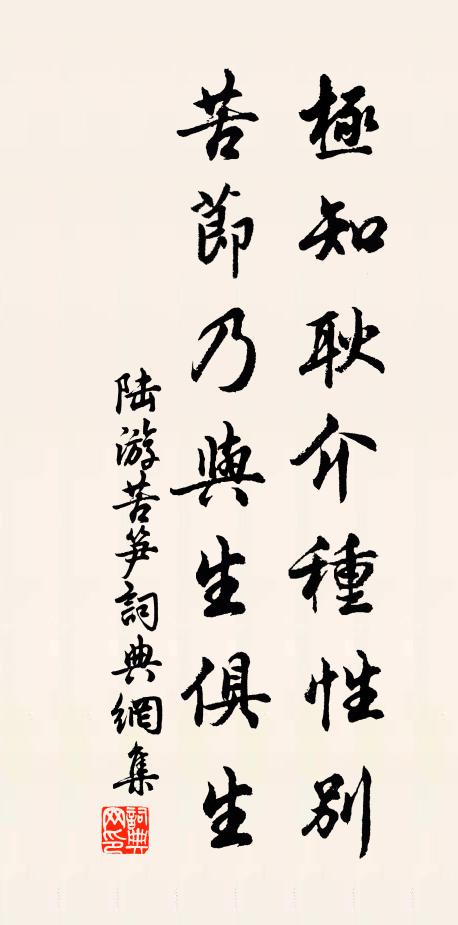 極知耿介種性別
苦節乃與生俱生
陸游苦笋詞典網集
詞典
网印